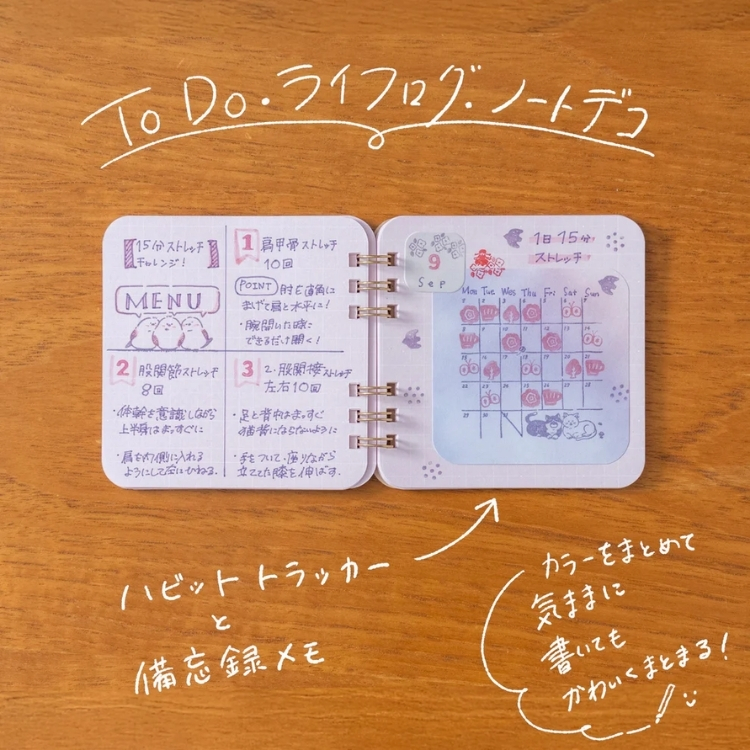 To Do・ライフログ・ノートデコ
【15分ストレッチ
チャレンジ!】
MENU
1 肩甲骨ストレッチ
10回
POINT 肘を直角に
まげて肩と水平に!
・腕開いた時に
できるだけ開く!
2 股関節ストレッチ
8回
・体幹を意識しながら
上半身はまっすぐに
・肩を内側に入れる
ようにして
3 2.股関接ストレッチ
左右10回
・足と背中はまっすぐ
猫背にならないように
・手をついて、座りながら
立ててた膝を伸ばす.
9
Sep
1日15分
ストレッチ
Mon Tue Wed Thu Fri Sat Sun
ハビットトラッカー
と
備忘録メモ
カラーをまとめて
気ままに
書いても
かわいくまとまる!